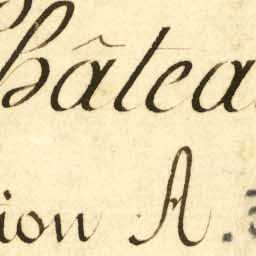 hâtea
ion A.